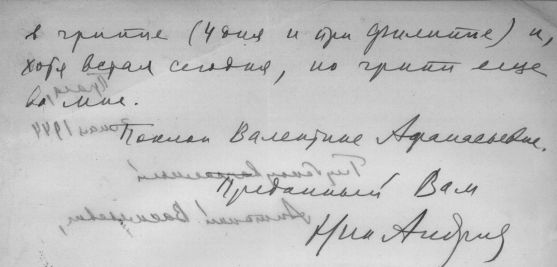 в гриппе (4 дня и при флебите) и,
хотя встал сегодня, но грипп еще
во мне.
Поклон Валентине Афанасьевне.
Преданный Вам
Ник Андреев